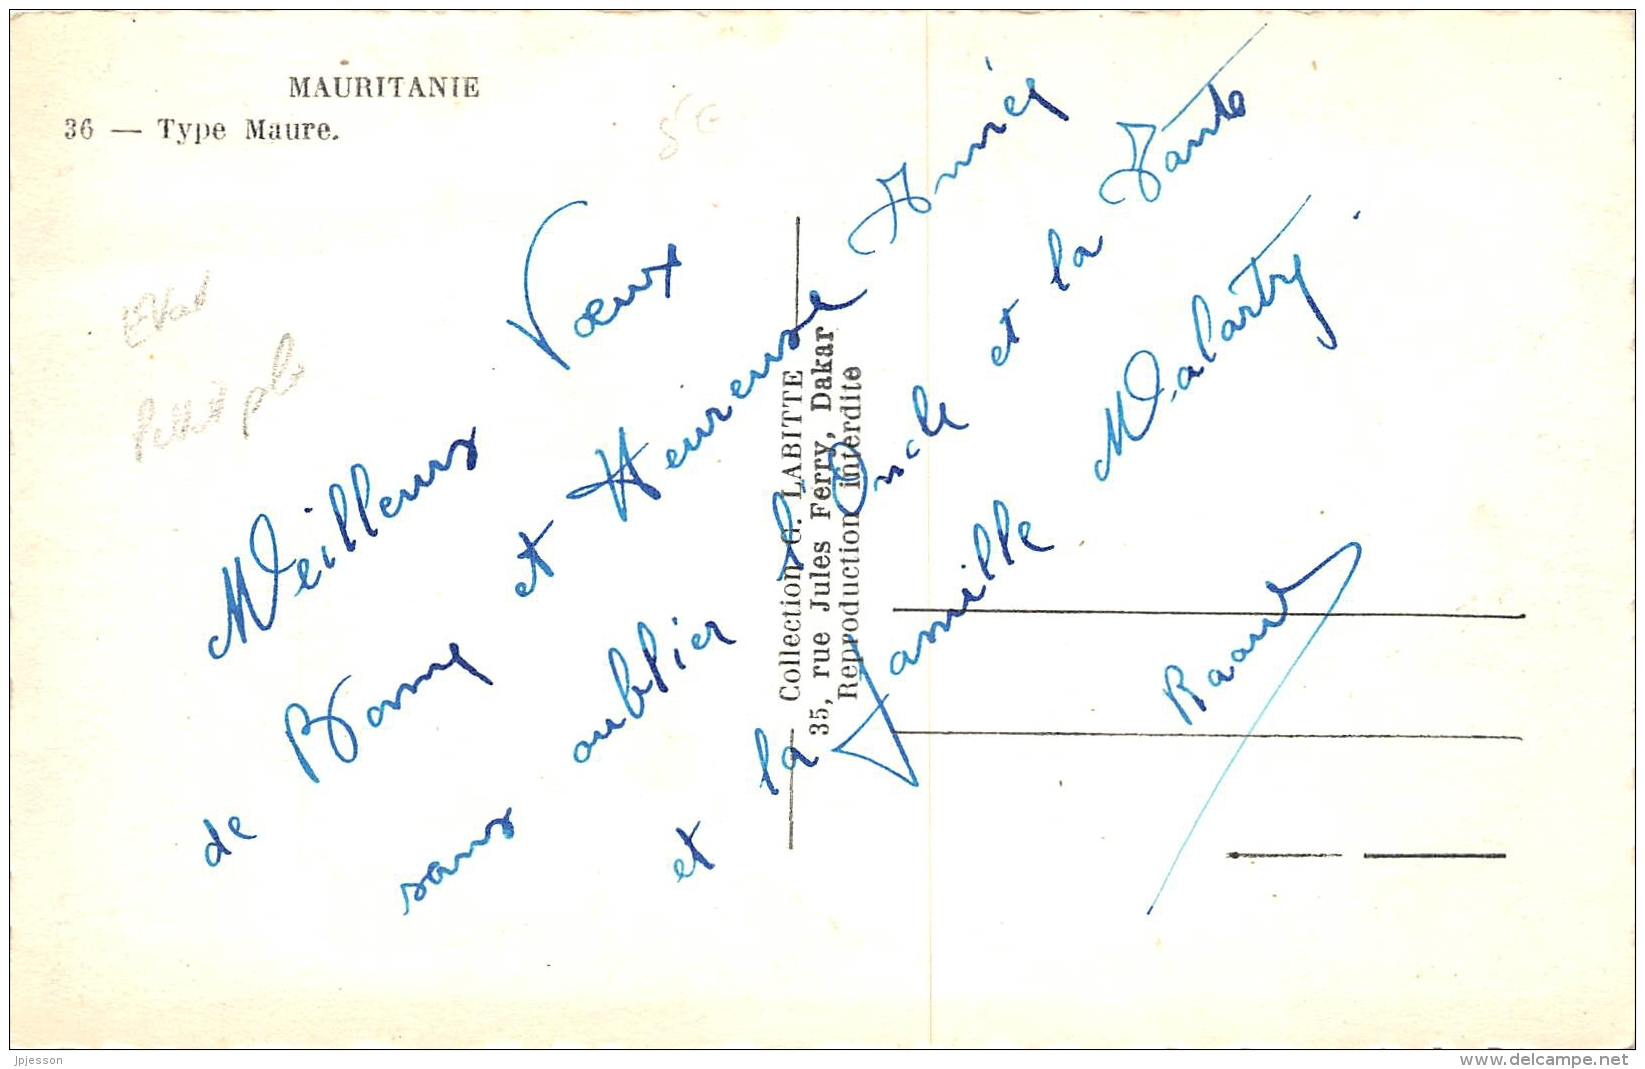 MAURITANIE
36 — Type Maure.
5€
état
petit pli
Meilleurs Voeux
de Bonne et Heureuse Année
sans oublier l'Oncle et la Tante
et la famille Malartry.
Raoul
Collection G. LABITTE
35, rue Jules Ferry, Dakar
Reproduction interdite
jpjesson
www.delcampe.net